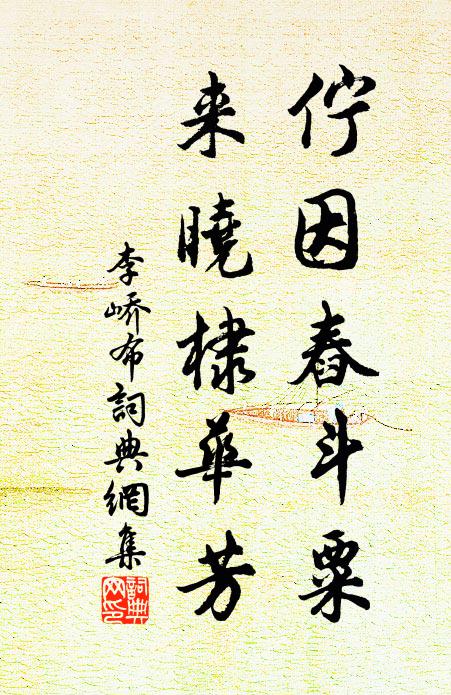 佇因舂斗粟
来曉棣華芳
李嶠布詞典網集
詞典网印